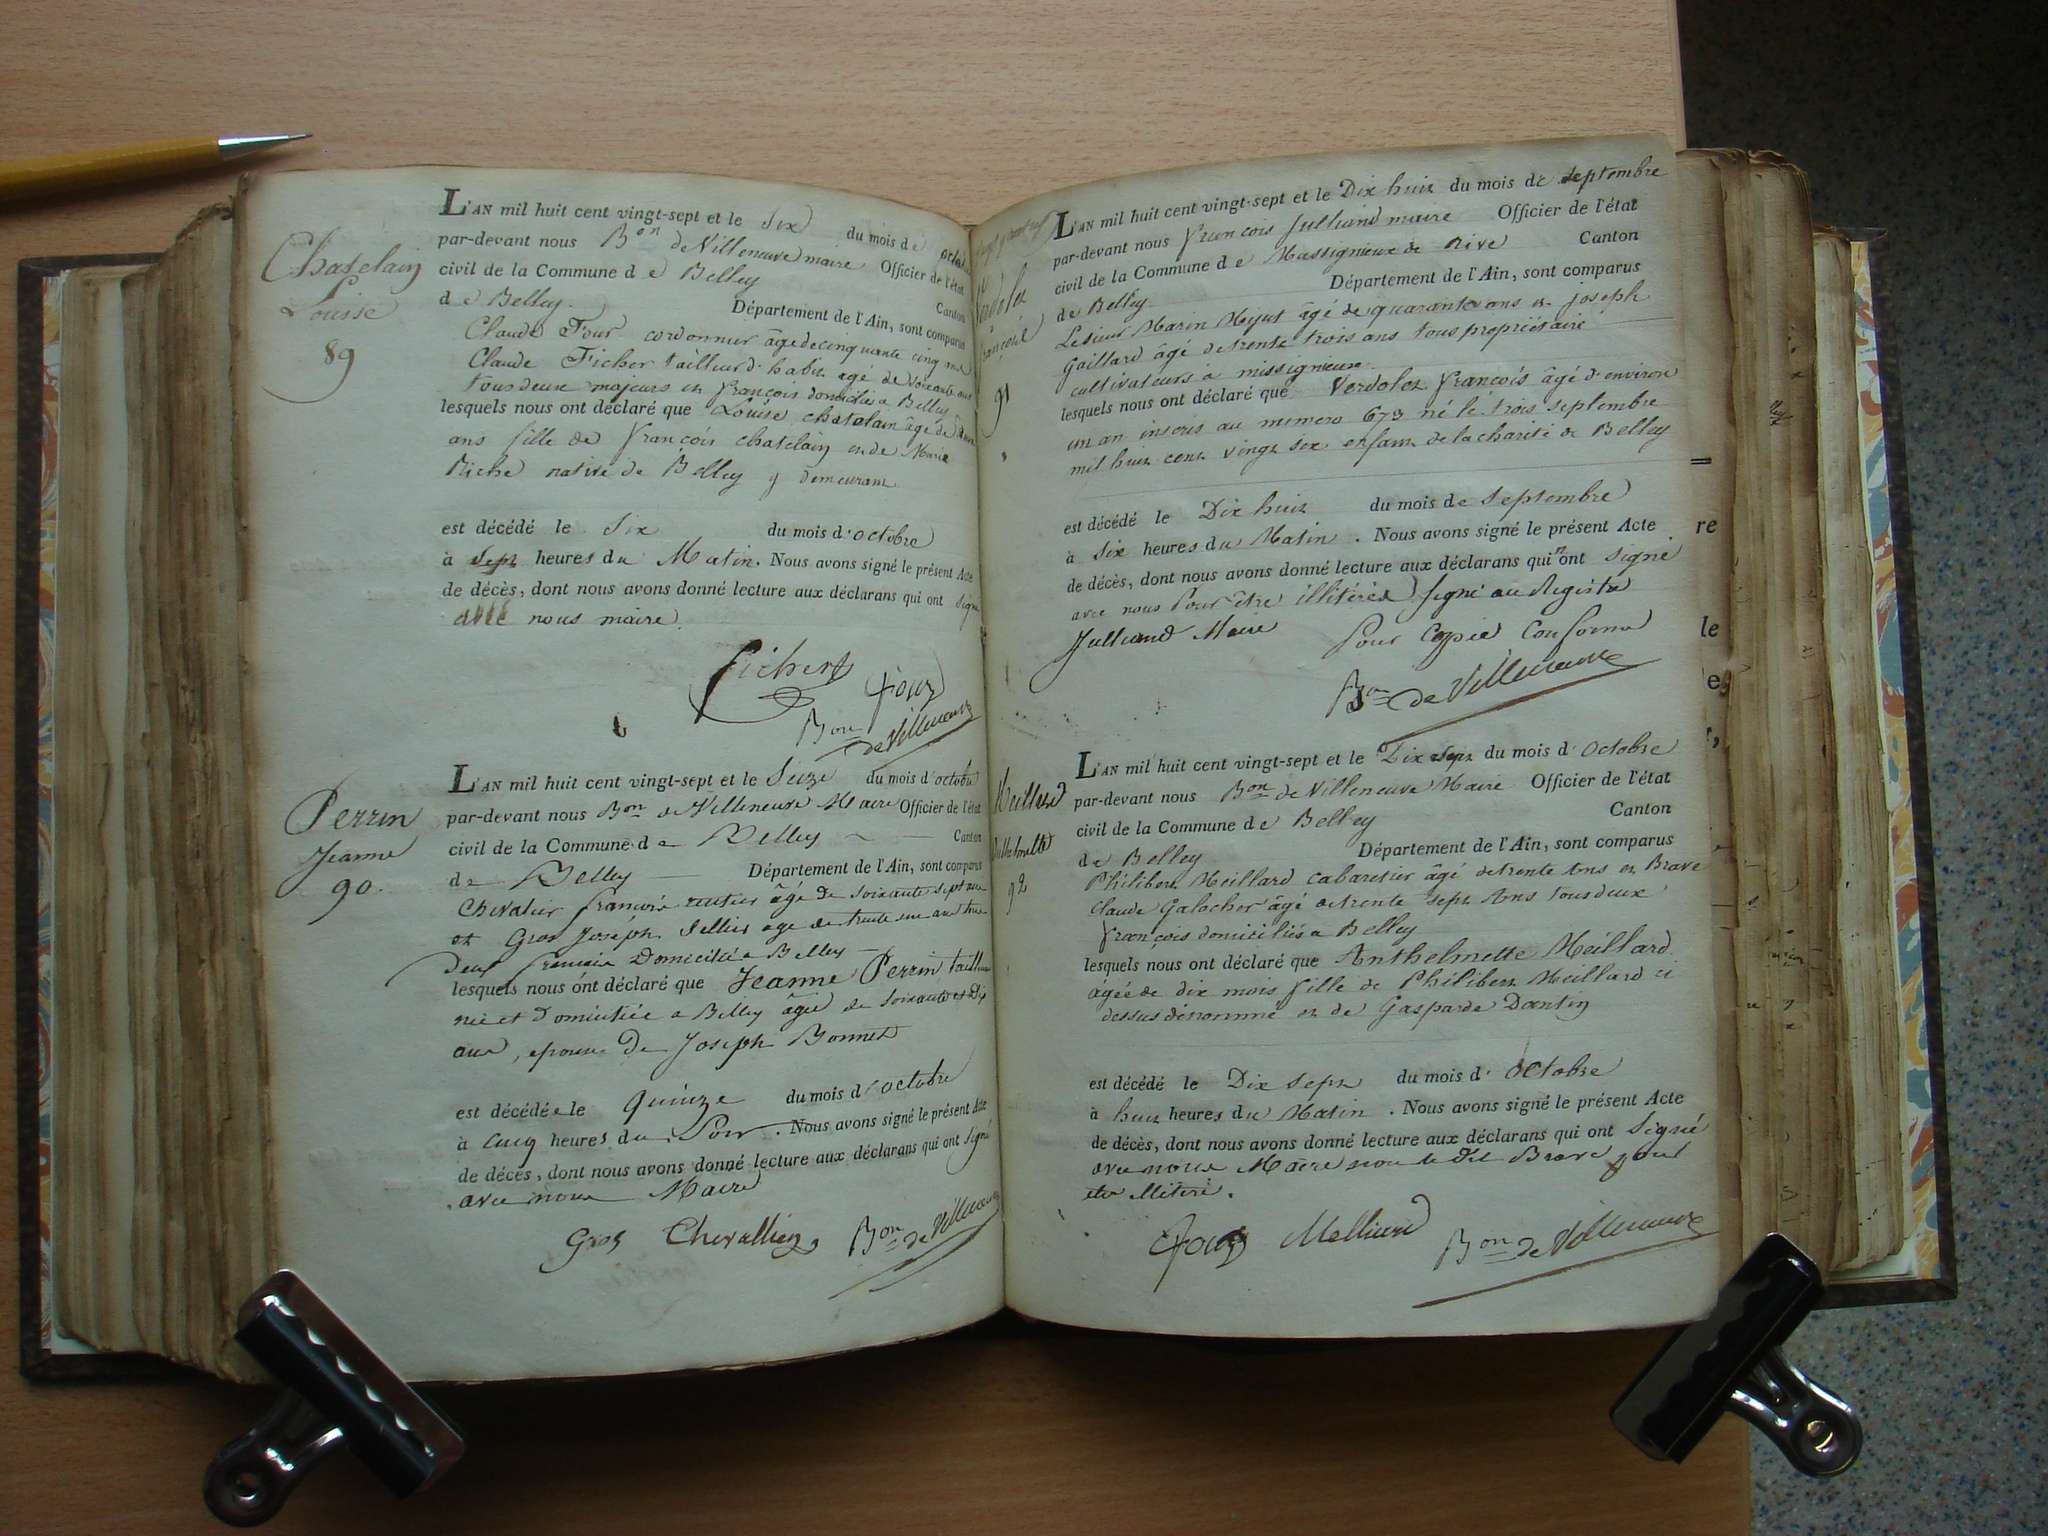 Chatelain
Louise
89
L'AN mil huit cent vingt-sept et le Six du mois de
par-devant nous Bon de Villeneuve maire Officier de l'état
civil de la Commune de Belley Canton
de Belley. Département de l'Ain, sont comparus
Claude Four cordonnier âgé de cinquante cinq ans
Claude Ficher tailleur d'habit âgé de soixante ans
tous deux majeurs et françois domiciliés a Belley
lesquels nous ont déclaré que Louise chatelain âgé de
ans fille de françois chatelain et de Marie
Riche native de Belley y demeurant
est décédé le Six du mois d'octobre
à sept heures du Matin. Nous avons signé le présent Acte
de décès, dont nous avons donné lecture aux déclarans qui ont signé
avec nous maire.
Fichert
Four
Bon de Villeneuve
Perrin
Jeanne
90.
L'AN mil huit cent vingt-sept et le Seize du mois d'octobre
par-devant nous Bon de Villeneuve Maire Officier de l'état
civil de la Commune de Belley Canton
de Belley Département de l'Ain, sont comparus
Chevalier françois rentier âgé de soixante sept ans
et Gros Joseph Sellier age de trente un ans tous
deux français Domiciliés a Belley
lesquels nous ont déclaré que Jeanne Perrin
née et Domiciliée a Belley âgée de soixante et Dix
ans, epouse De Joseph Bonnet
est décédée le Quinze du mois d'octobre
à cinq heures du Soir. Nous avons signé le présent Acte
de décès, dont nous avons donné lecture aux déclarans qui ont Signé
avec nous Maire
Gros Chevallier Bon de Villeneuve
91
L'AN mil huit cent vingt-sept et le Dix huit du mois de septembre
par-devant nous François Julliand maire Officier de l'état
civil de la Commune de Massignieux de Rive Canton
de Belley Département de l'Ain, sont comparus
Le sieur Marin âgé de quarante ans et joseph
Gaillard âgé de trente trois ans tous propriétaire
cultivateurs à missignieux
lesquels nous ont déclaré que Verdolet françois âgé d'environ
un an inscris au numero 673 né le trois septembre
mil huit cent vingt six enfant de la charité de Belley
est décédé le Dix huit du mois de Septembre
à Six heures du Matin. Nous avons signé le présent Acte
de décès, dont nous avons donné lecture aux déclarans qui n'ont signé
avec nous Pour être illitérés Signé au Registre
Julliand Maire Pour Copie Conforme
Bon de Villeneuve
Meillard
Anthelmette
92
L'AN mil huit cent vingt-sept et le Dix Sept du mois d'Octobre
par-devant nous Bon de Villeneuve Maire Officier de l'état
civil de la Commune de Belley Canton
de Belley Département de l'Ain, sont comparus
Philibert Meillard cabaretier âgé de trente Ans et Brave
Claude Galocher âgé de trente sept Ans tous deux
françois domiciliés a Belley
lesquels nous ont déclaré que Anthelmette Meillard
âgée de dix mois fille de Philibert Meillard ci
dessus dénommé et de Gasparde Dantin
est décédé le Dix Sept du mois d'Octobre
à huit heures du Matin. Nous avons signé le présent Acte
de décès, dont nous avons donné lecture aux déclarans qui ont Signé
avec nous Maire non le dit Brave pour
être illitéré.
Meilliard Bon de Villeneuve
re
le